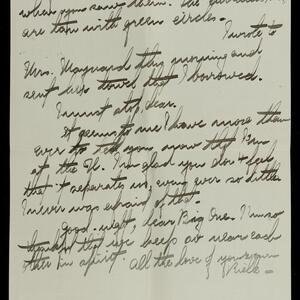 when you saw them. The
are tan with green circles.
I wrote to
Mrs. Maynard this morning and
sent her towel that I borrowed.
I must stop, dear.
It seems to me I have more than
ever to tell you now that I'm
at the I'm glad you don't feel
that it separates us, even ever so little
I never was afraid of that.
Good night, dear Big One. I'm so
thankful that we keep so near each
other in spirit. All the love of your own